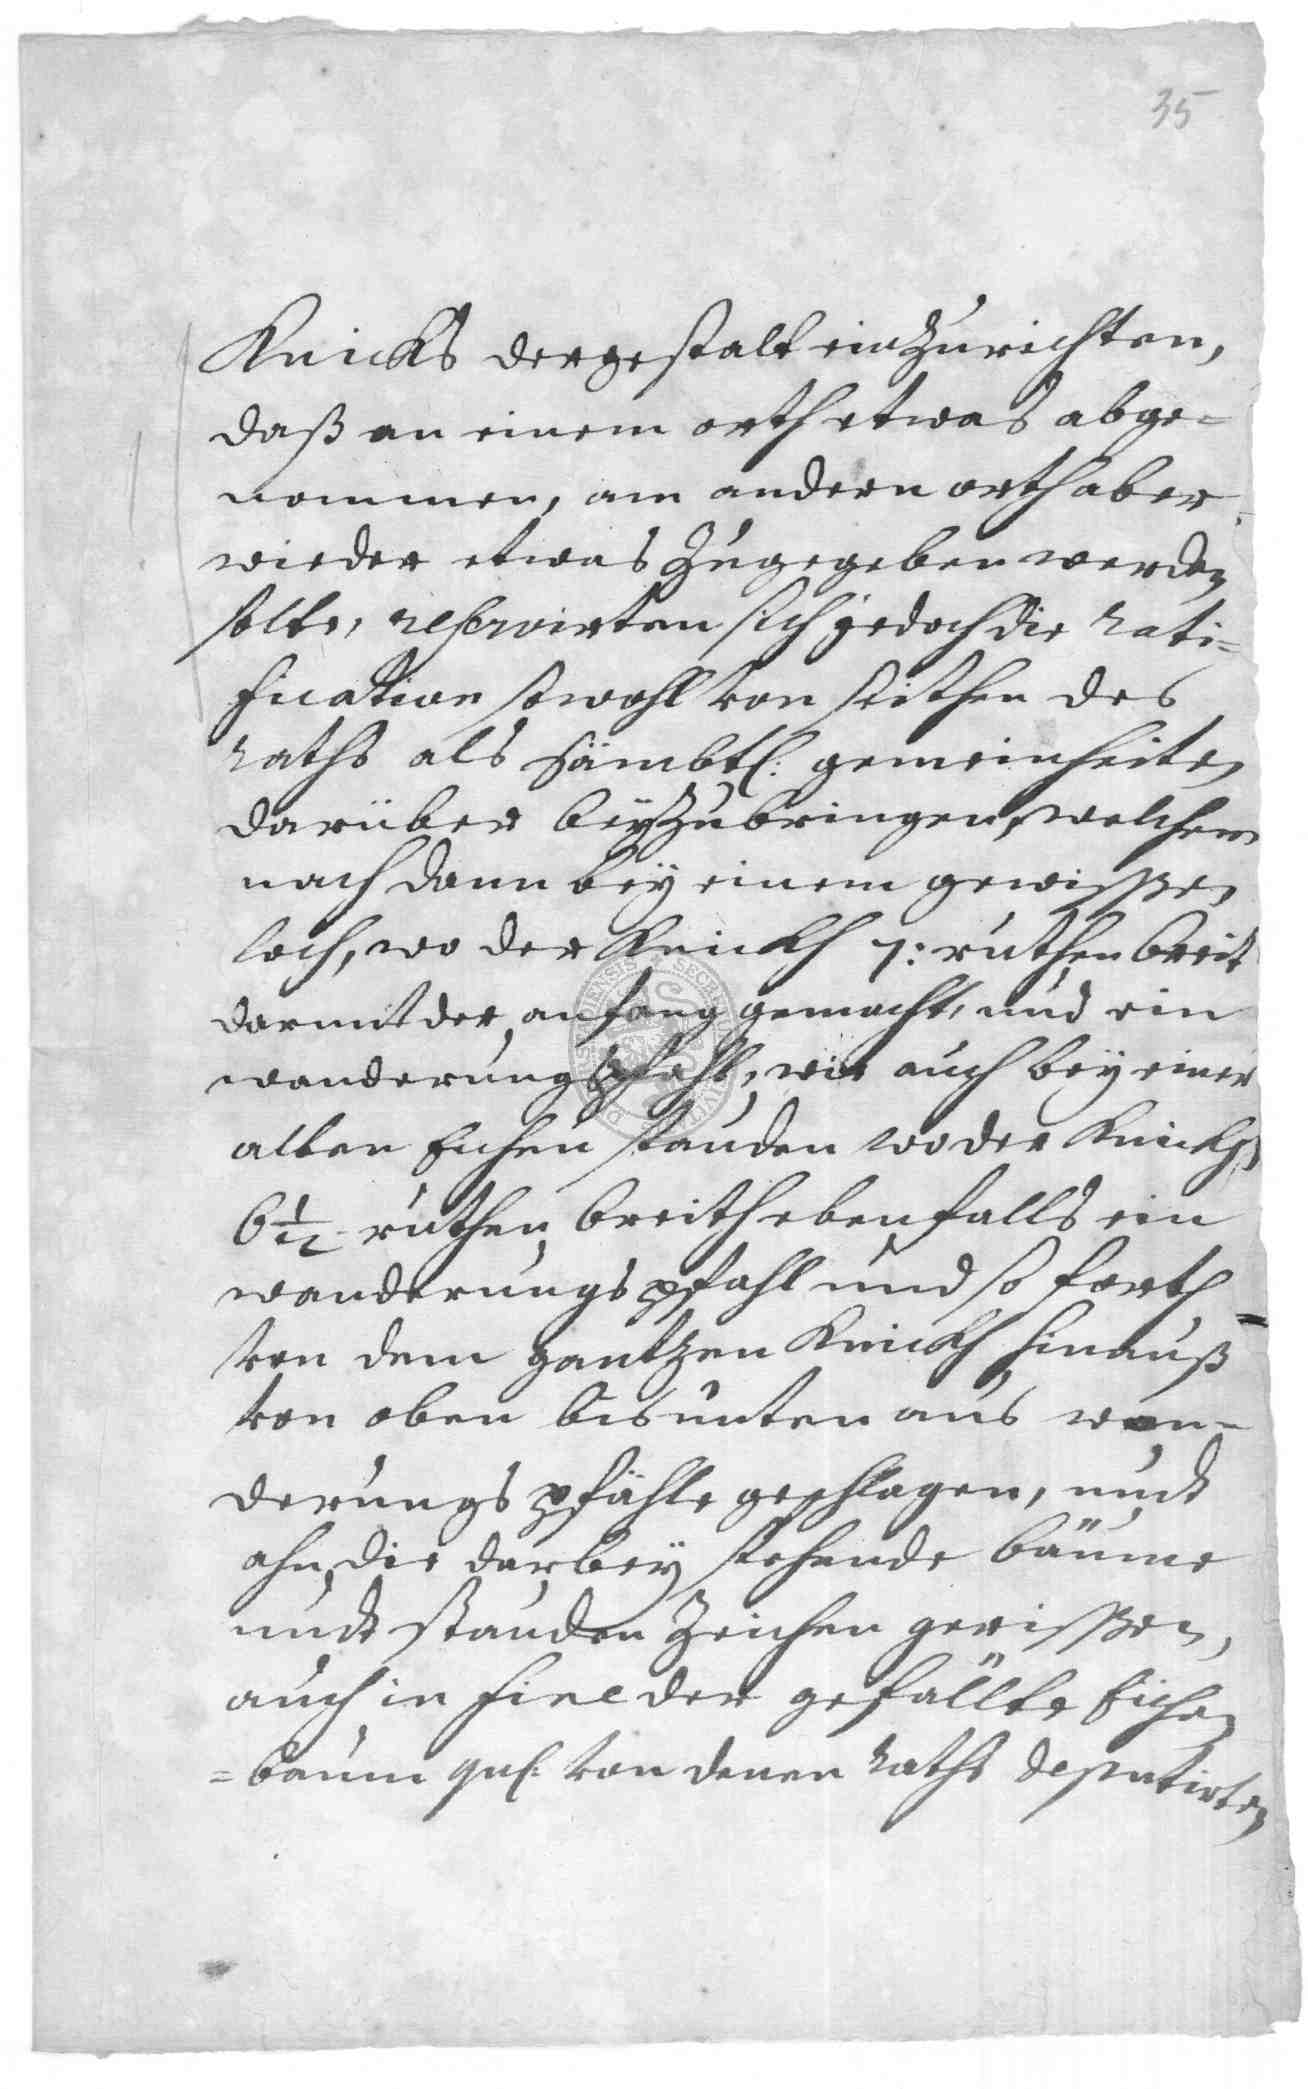 35
Knicks dergestalt einzurichten,
daß an einem orth etwas abge-
nommen, am andern orth aber
wieder etwas zugegeben werden
solte, reservirten sich jedoch die rati-
fication sowohl von seithen des
raths als sämbtl: gemeinheiten
darüber beyzubringen, welchem
nach dann bey einem gewissen
loch, wo der Knickh 7: ruthen breit
darmit der anfang gemacht, und ein
wanderungspfahl, wie auch bey einer
alten Eichen stauden wo der Knickh
6 1/2 ruthen breith ebenfalls ein
wanderungs pfahl und so forth
von dem gantzen Knickh hinauß
von oben bis unten aus wan-
derungs pfähle geschlagen, undt
ahn die darbey stehende bäume
undt stauden Zeichen gerissen,
auch in fine der gefällte Eichen
=baum von denen raths deputirten